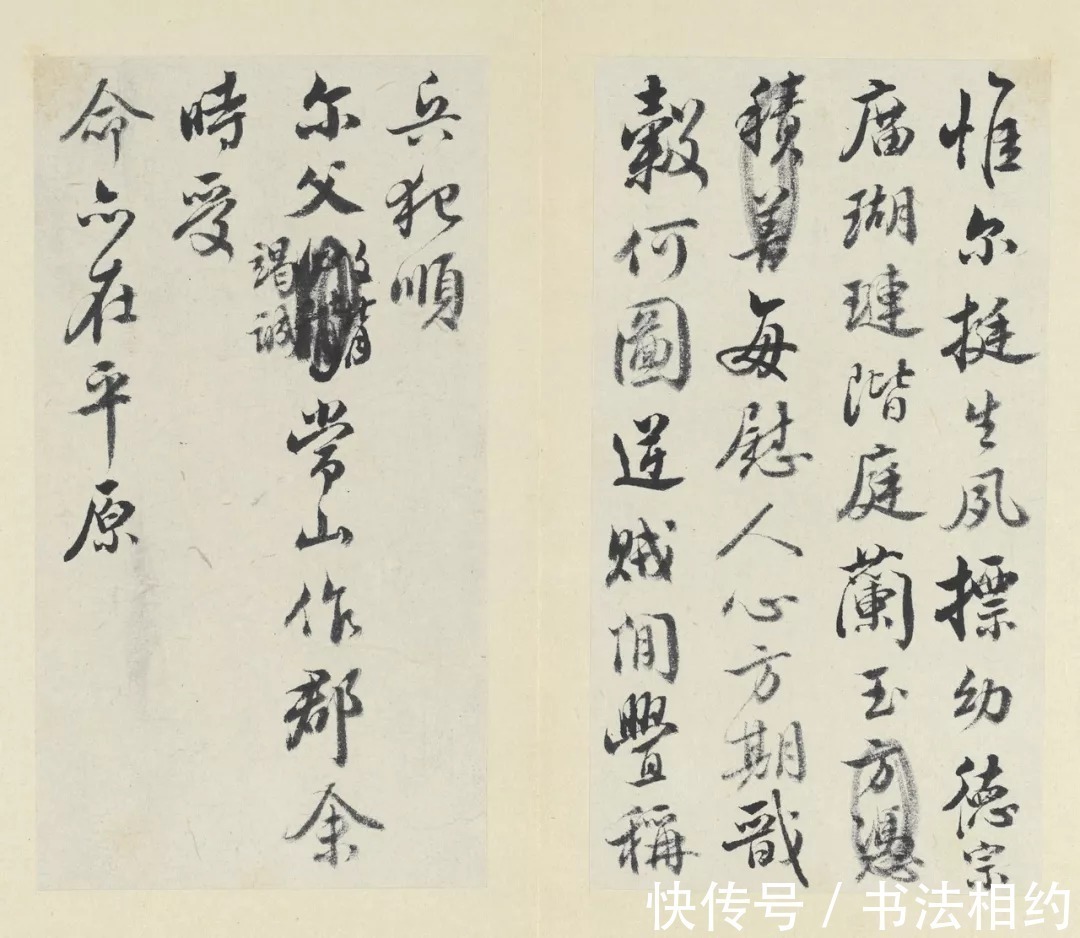 惟尔挺生夙標幼德宗
庿瑚璉階庭蘭玉方憑
積善每慰人心方期戬
榖何圖逆賊閒舋稱
兵犯順
尔父
竭誠
常山作郡余
時受
命亦在平原
快传号 / 书法相约